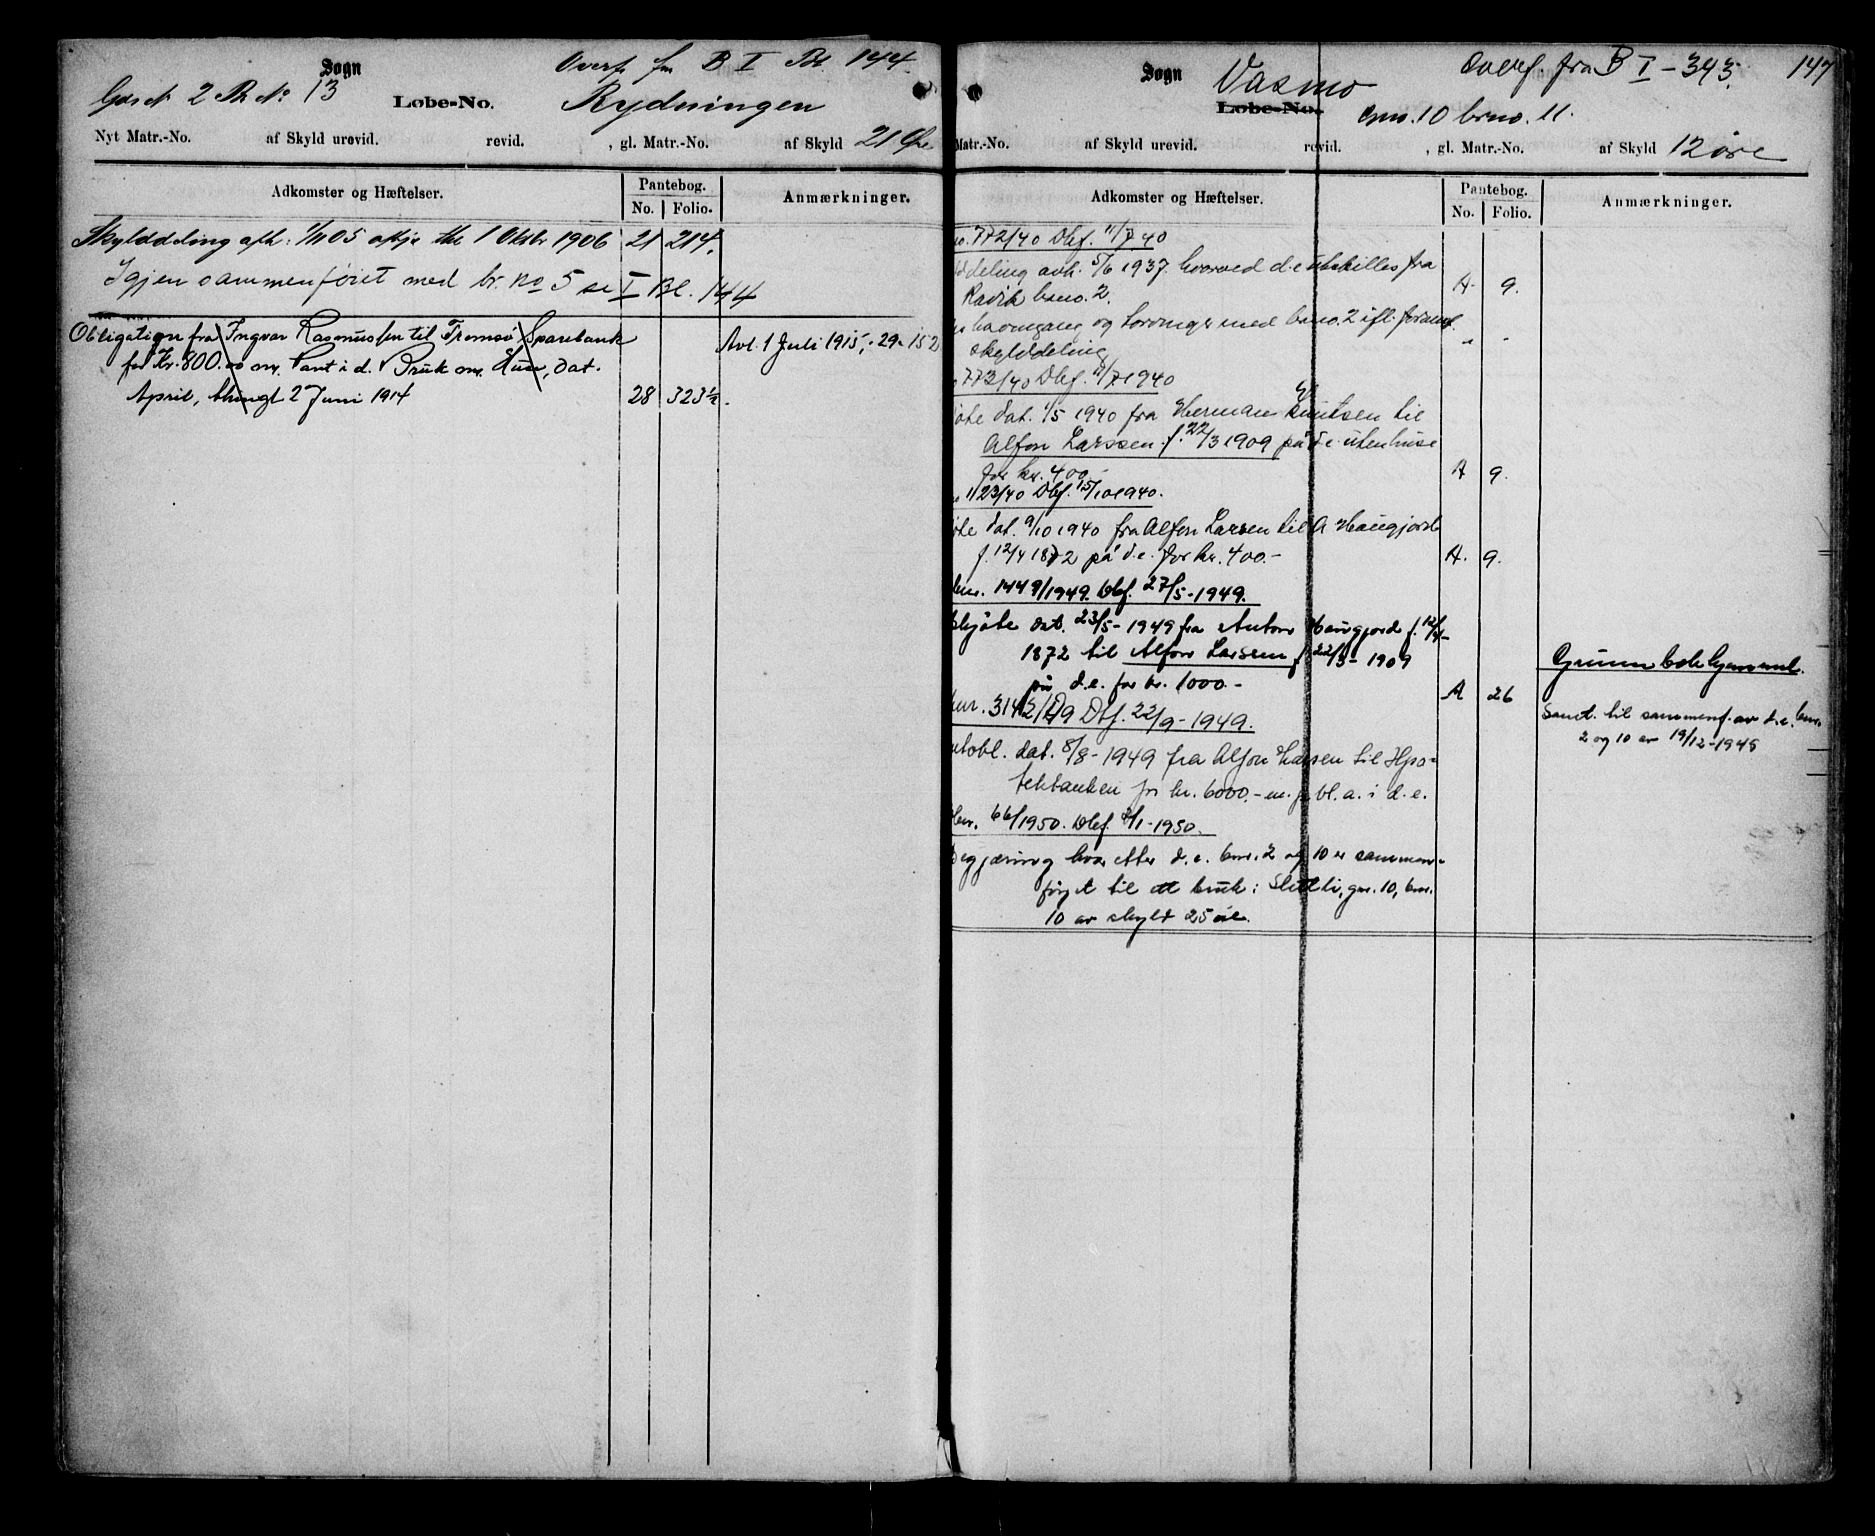 Overf. fra B I Bl. 144.
Sogn
Gards No 2 Br. No 13
Løbe-No. Rydningen
Nyt Matr.-No. af Skyld urevid. revid. , gl. Matr.-No. af Skyld 21 Øre
Adkomster og Hæftelser. Pantebog. No. Folio. Anmærkninger.
Skylddeling afh. 1/11 05 thl 1 Oktbr 1906 21 214.
Igjen sammenføiet med br. no 5 se I Bl. 144
Obligation fra Ingvar Rasmussen til Tromsø Sparebank Avl. 1 Juli 1915, 29-152
for Kr. 800.00 m. Pant i d. Bruk m. Huse, dat.
April, thingl 2 Juni 1914 28 323½.
Overf. fra B I - 343. 147
Sogn Vasmo
Løbe-No. gno. 10 brno. 11.
Matr.-No. af Skyld urevid. revid. , gl. Matr.-No. af Skyld 12 øre
Adkomster og Hæftelser. Pantebog. No. Folio. Anmærkninger.
no. 772/40 Dbf. 11/7 40
ddeling avh. 5/6 1937. hvorved d.e utskilles fra
Ravik brno. 2. A. 9.
havnegang og med brno. 2 ifl. foranf.
skylddeling " "
773/40 Dbf. 11/7 1940
øte dat. 1/5 1940 fra Herman Knutsen til
Alfon Larssen f. 22/3 1909 på d.e. uten huse
for kr. 400.- A 9.
1123/40 Dbf. 15/10 1940.
øte dat. 9/10 1940 fra Alfon Larsen til A Haugjord
f. 12/4 1872 på d.e. for kr. 400.- A. 9.
bnr. 1449/1949. Dbf. 27/5-1949.
skjøte dat. 23/5-1949 fra Anton Haugjord f. 12/4-
1872 til Alfon Larssen f. 22/3-1909
på d.e. for kr. 1000.- A 26
Grunnboksgammel.
nr. 3142/49 Dbf. 22/9-1949.
Samt. til sammenf. av d.e. bnr.
2 og 10 av 19/12-1949
ntobl. dat. 8/8-1949 fra Alfon Larsen til Hpo-
tekbanken for kr. 6000.- m. p. bl. a. i d.e.
bnr. 66/1950. Dbf. 4/1-1950.
Begjæring hvor etter d.e. bnr. 2 og 10 er sammen-
føyet til ett bruk: Slettli, gnr. 10, bnr.
10 av skyld 25 øre.